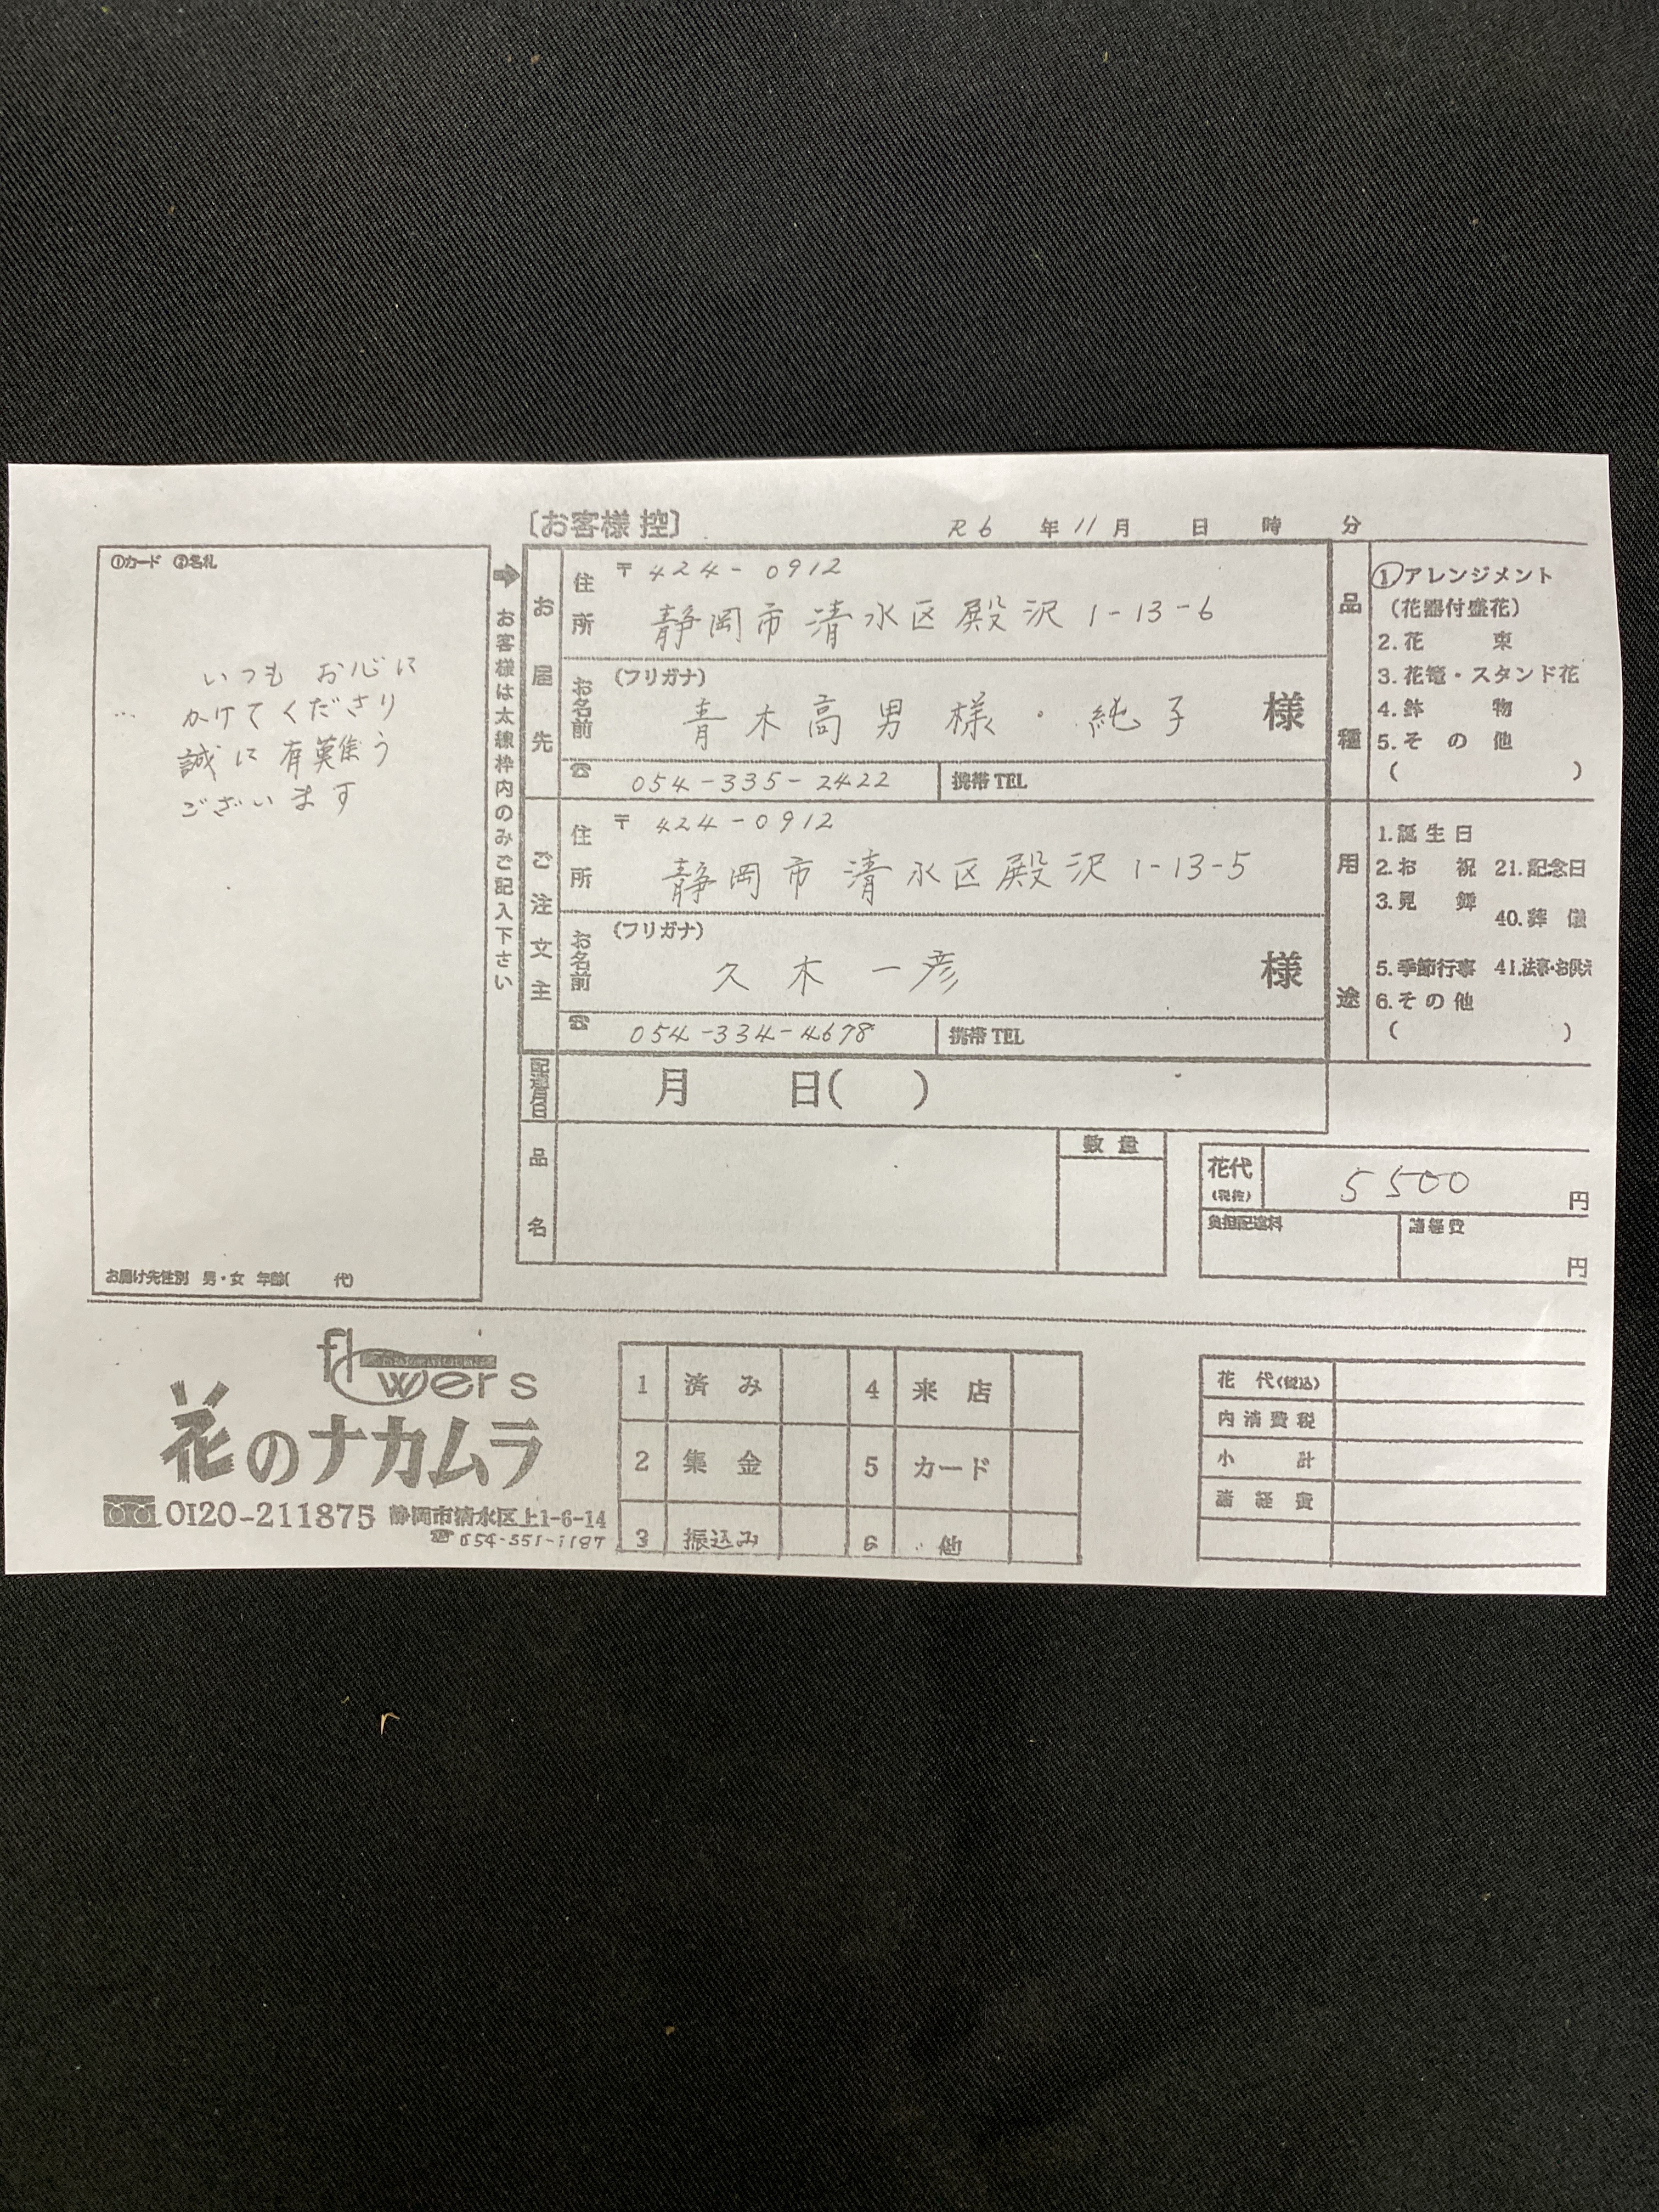 〔お客様 控〕 R6 年 11 月 日 時 分
①カード ②名札
いつも お心に
かけてくださり
誠に有難う
ございます
お届け先性別 男・女 年齢( 代)
お客様は太線枠内のみご記入下さい
お届先
住所
〒424-0912
静岡市清水区殿沢1-13-6
お名前
(フリガナ)
青木高男様・純子 様
☎ 054-335-2422 携帯TEL
ご注文主
住所
〒424-0912
静岡市清水区殿沢1-13-5
お名前
(フリガナ)
久木一彦 様
☎ 054-334-4678 携帯TEL
配達月日 月 日( )
品名
数量
品種
①アレンジメント
(花器付盛花)
2.花束
3.花篭・スタンド花
4.鉢物
5.その他
( )
用途
1.誕生日
2.お祝 21.記念日
3.見舞
40.葬儀
5.季節行事 41.法事・お供え
6.その他
( )
花代
(税抜)
5500 円
負担配送料 諸経費
円
flowers
花のナカムラ
0120-211875 静岡市清水区上1-6-14
☎054-351-1187
1 済み 4 来店
2 集金 5 カード
3 振込み 6 他
花代(税込)
内消費税
小計
諸経費